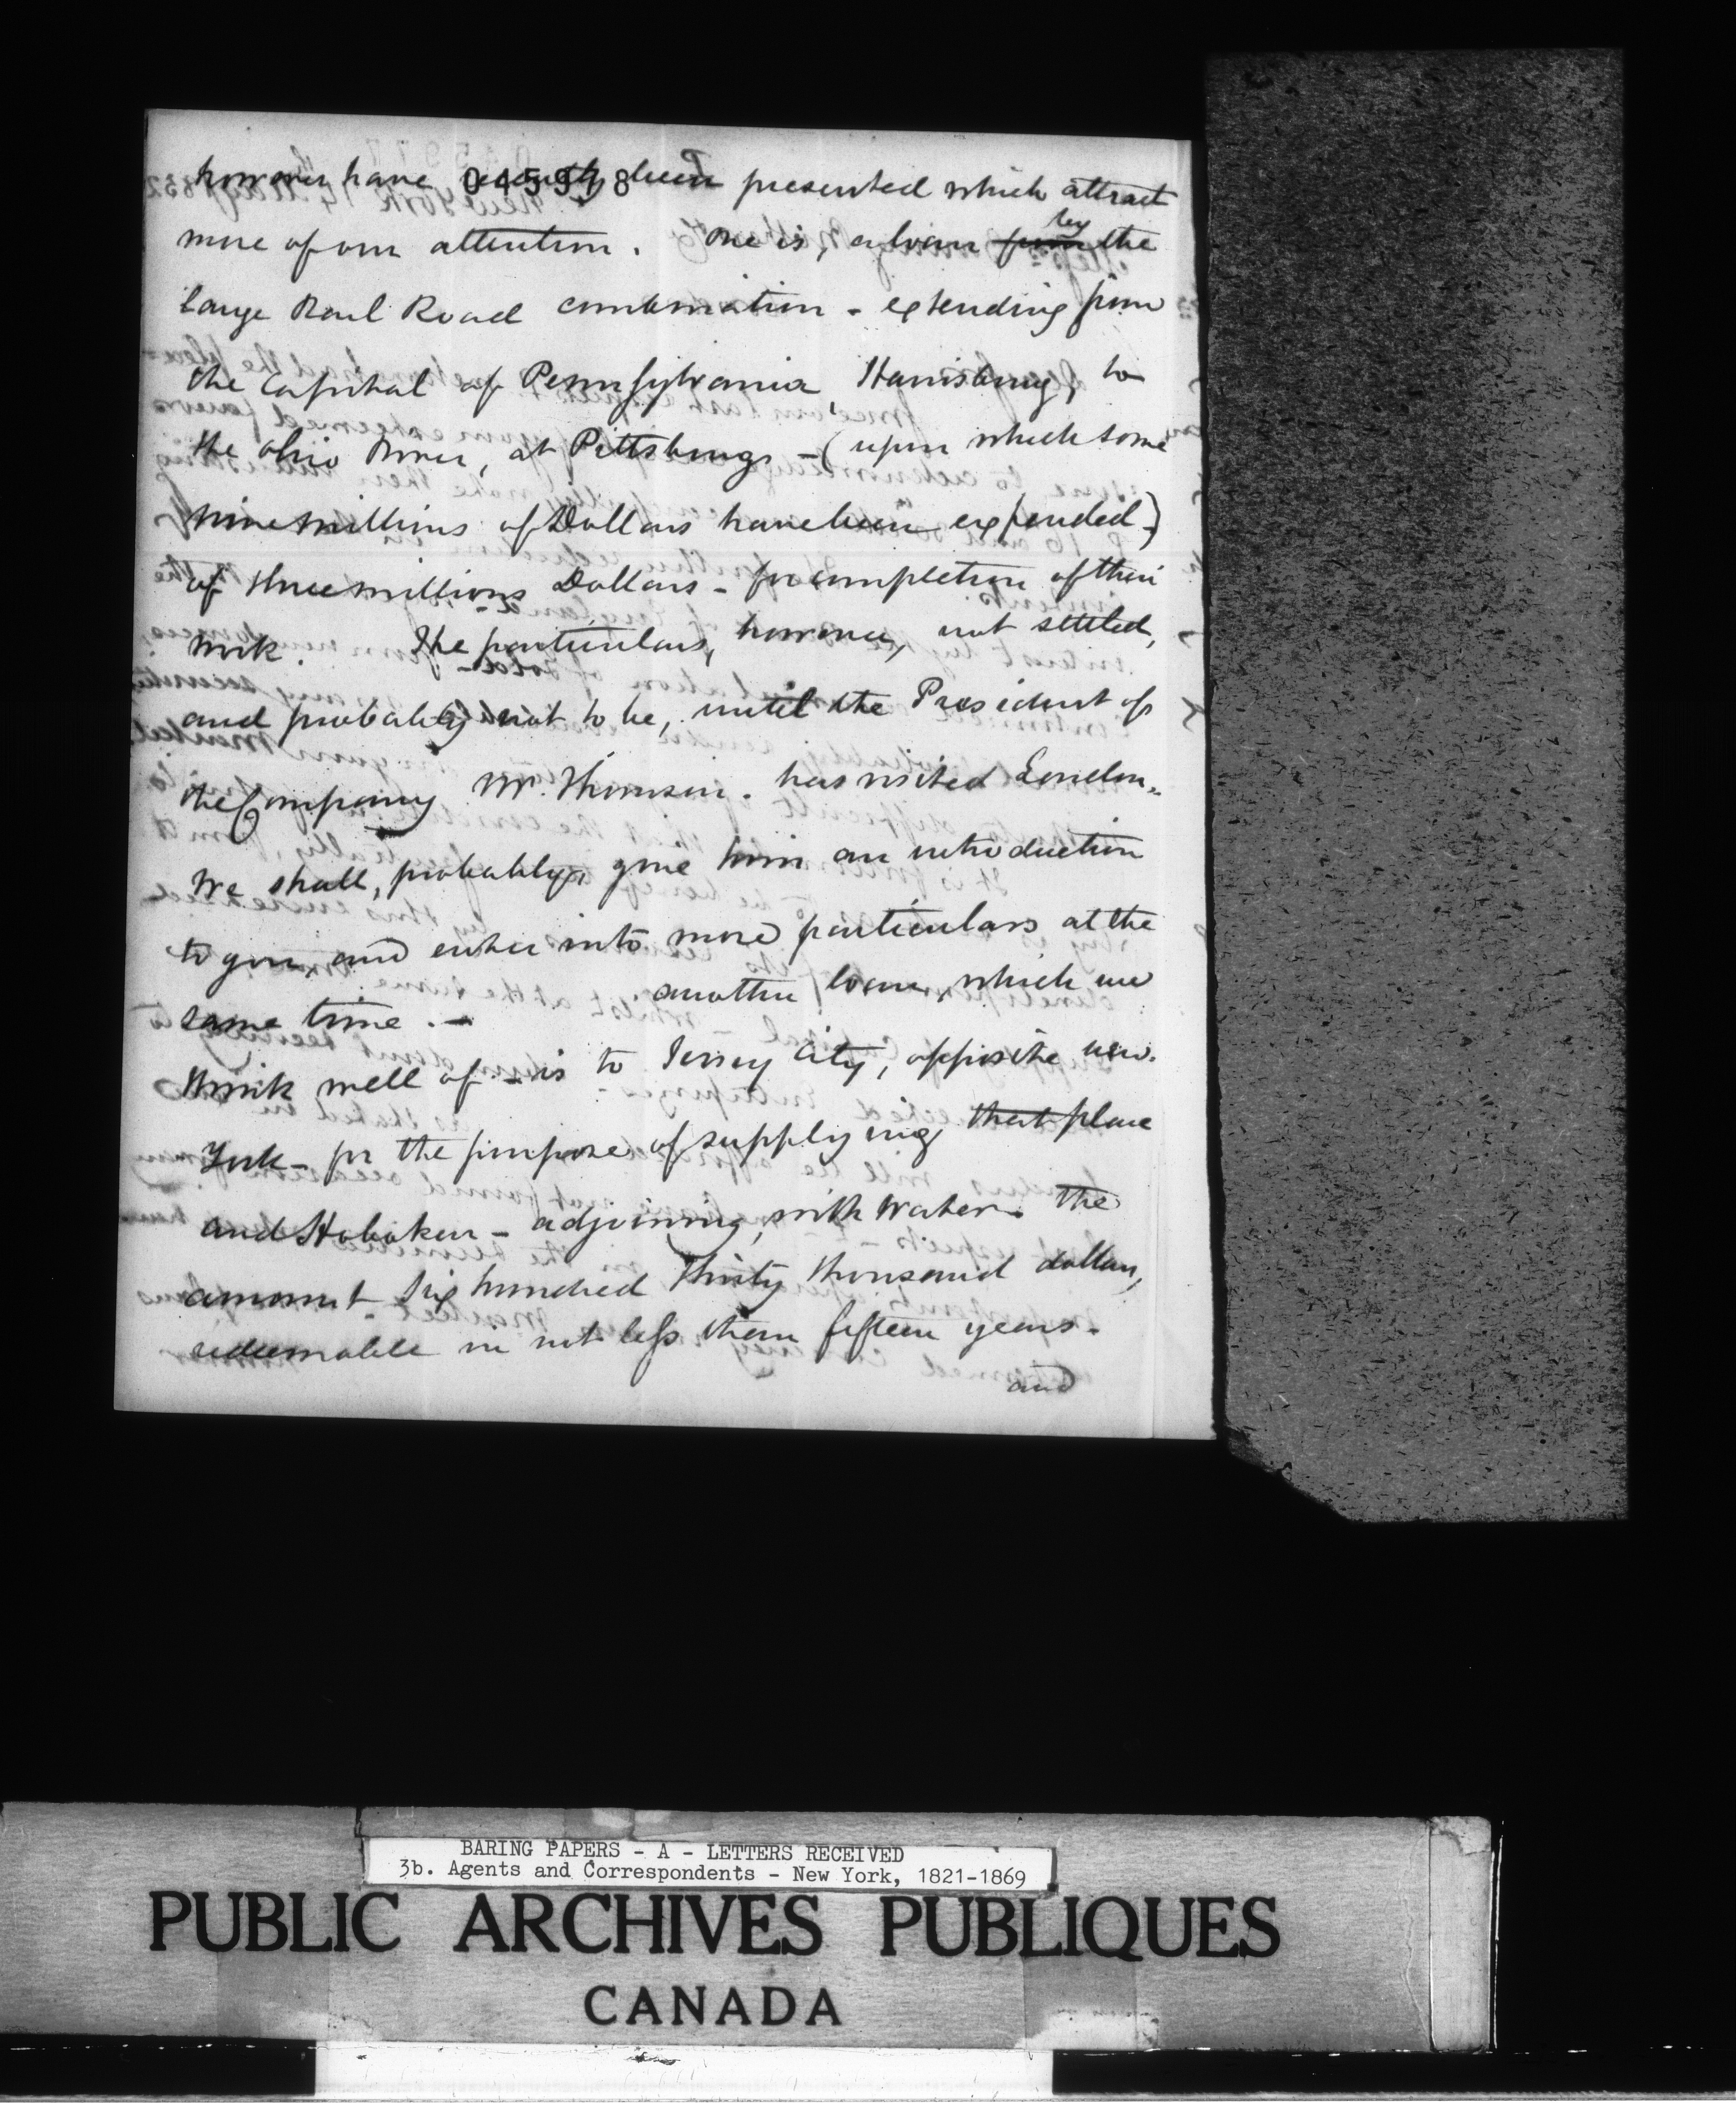 045978
however have recently been presented which attract
more of our attention. One is, a loan from by the
large Rail Road combination - extending from
the Capital of Pennsylvania, Harrisburg, to
the Ohio River, at Pittsburgs - (upon which some
nine millions of Dollars have been expended -)
of three millions Dollars - for completion of their
work. The particulars, however, not settled,
and probably not to be, until the President of
the Company Mr. Thomson. has visited London.
We shall, probably, give him an introduction
to you, and enter into more particulars at the
same time. - another loan, which we
think well of - is to Jersey City, opposite New.
York - for the purpose of supplying that place
and Hoboken - adjoining, with water. The
amount six hundred thirty thousand dollars,
redeemable in not less than fifteen years.
and
BARING PAPERS - A - LETTERS RECEIVED
3b. Agents and Correspondents - New York, 1821-1869
PUBLIC ARCHIVES PUBLIQUES
CANADA